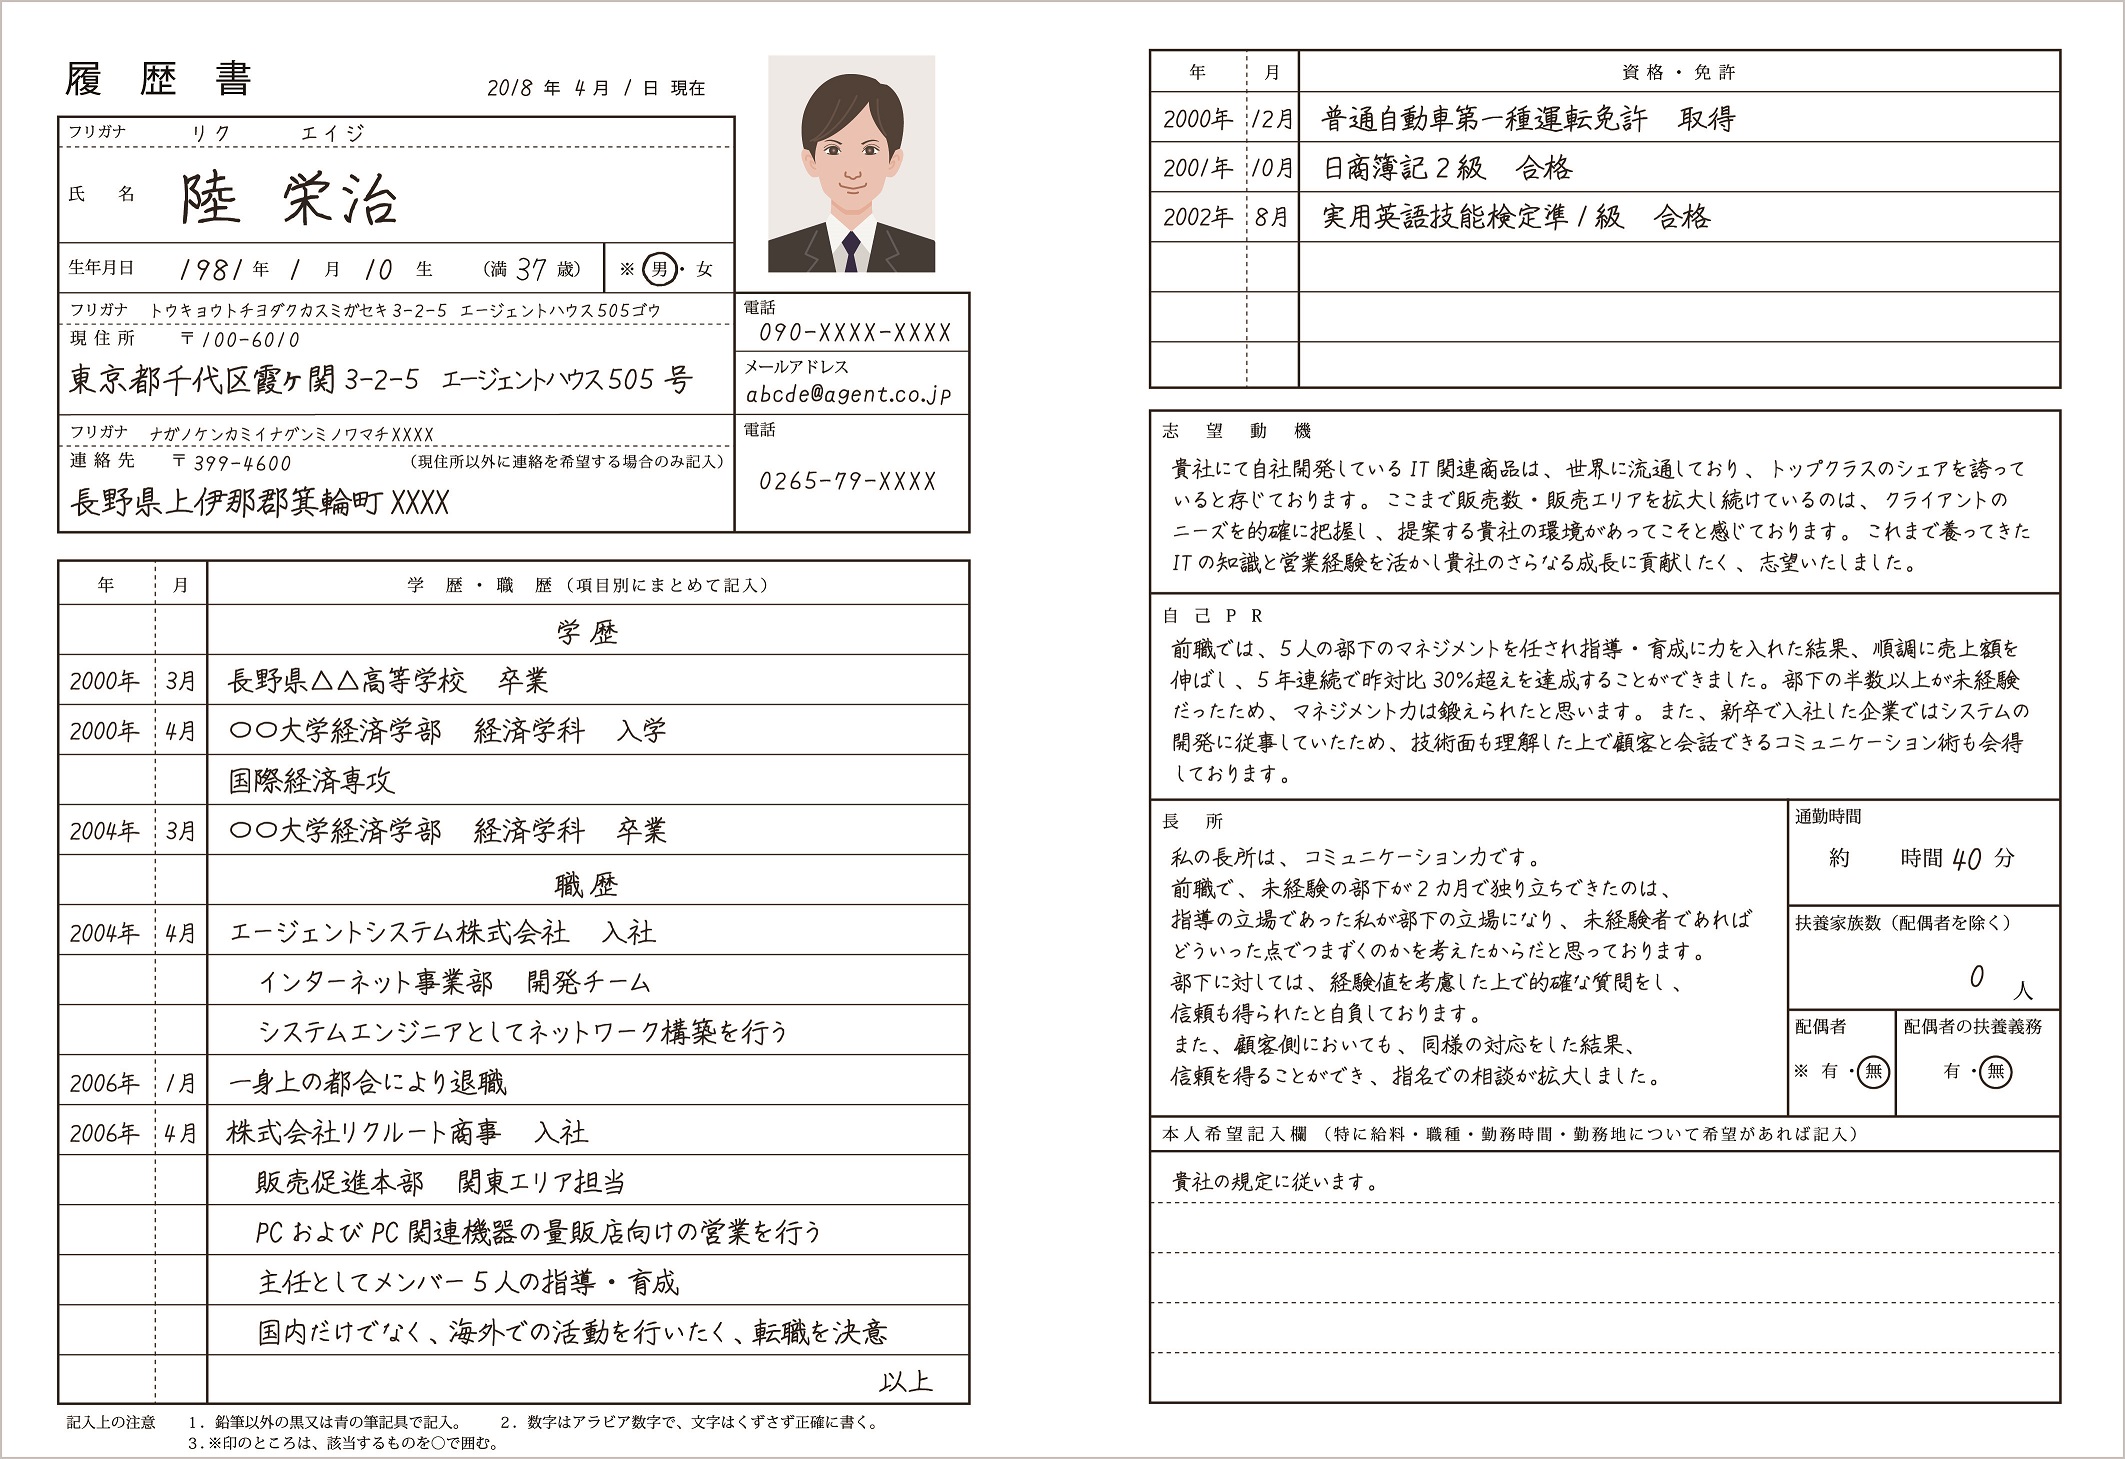 履歴書
2018 年 4 月 1 日 現在
フリガナ リク エイジ
氏 名 陸 栄治
生年月日 1981 年 1 月 10 生 (満 37 歳) ※ 男・女
フリガナ トウキョウトチヨダクカスミガセキ 3-2-5 エージェントハウス505ゴウ
現住所 〒100-6010
東京都千代区霞ヶ関 3-2-5 エージェントハウス505 号
電話
090-XXXX-XXXX
メールアドレス
abcde@agent.co.jp
フリガナ ナガノケンカミイナグンミノワマチXXXX
連絡先 〒399-4600 (現住所以外に連絡を希望する場合のみ記入)
長野県上伊那郡箕輪町 XXXX
電話
0265-79-XXXX
年 月 学 歴・職 歴(項目別にまとめて記入)
学歴
2000年 3月 長野県△△高等学校 卒業
2000年 4月 〇〇大学経済学部 経済学科 入学
国際経済専攻
2004年 3月 〇〇大学経済学部 経済学科 卒業
職歴
2004年 4月 エージェントシステム株式会社 入社
インターネット事業部 開発チーム
システムエンジニアとしてネットワーク構築を行う
2006年 1月 一身上の都合により退職
2006年 4月 株式会社リクルート商事 入社
販売促進本部 関東エリア担当
PC および PC 関連機器の量販店向けの営業を行う
主任としてメンバー 5 人の指導・育成
国内だけでなく、海外での活動を行いたく、転職を決意
以上
記入上の注意 1. 鉛筆以外の黒又は青の筆記具で記入。 2. 数字はアラビア数字で、文字はくずさず正確に書く。
3.※印のところは、該当するものを○で囲む。
年 月 資格・免許
2000年 12月 普通自動車第一種運転免許 取得
2001年 10月 日商簿記 2 級 合格
2002年 8月 実用英語技能検定準 1 級 合格
志望動機
貴社にて自社開発している IT 関連商品は、世界に流通しており、トップクラスのシェアを誇って
いると存じております。ここまで販売数・販売エリアを拡大し続けているのは、クライアントの
ニーズを的確に把握し、提案する貴社の環境があってこそと感じております。これまで養ってきた
IT の知識と営業経験を活かし貴社のさらなる成長に貢献したく、志望いたしました。
自己PR
前職では、5 人の部下のマネジメントを任され指導・育成に力を入れた結果、順調に売上額を
伸ばし、5 年連続で昨対比 30%超えを達成することができました。部下の半数以上が未経験
だったため、マネジメント力は鍛えられたと思います。また、新卒で入社した企業ではシステムの
開発に従事していたため、技術面も理解した上で顧客と会話できるコミュニケーション術も会得
しております。
長所
私の長所は、コミュニケーション力です。
前職で、未経験の部下が 2 カ月で独り立ちできたのは、
指導の立場であった私が部下の立場になり、未経験者であれば
どういった点でつまずくのかを考えたからだと思っております。
部下に対しては、経験値を考慮した上で的確な質問をし、
信頼も得られたと自負しております。
また、顧客側においても、同様の対応をした結果、
信頼を得ることができ、指名での相談が拡大しました。
通勤時間
約 時間 40 分
扶養家族数(配偶者を除く)
0 人
配偶者
※ 有・無
配偶者の扶養義務
有・無
本人希望記入欄 (特に給料・職種・勤務時間・勤務地について希望があれば記入)
貴社の規定に従います。